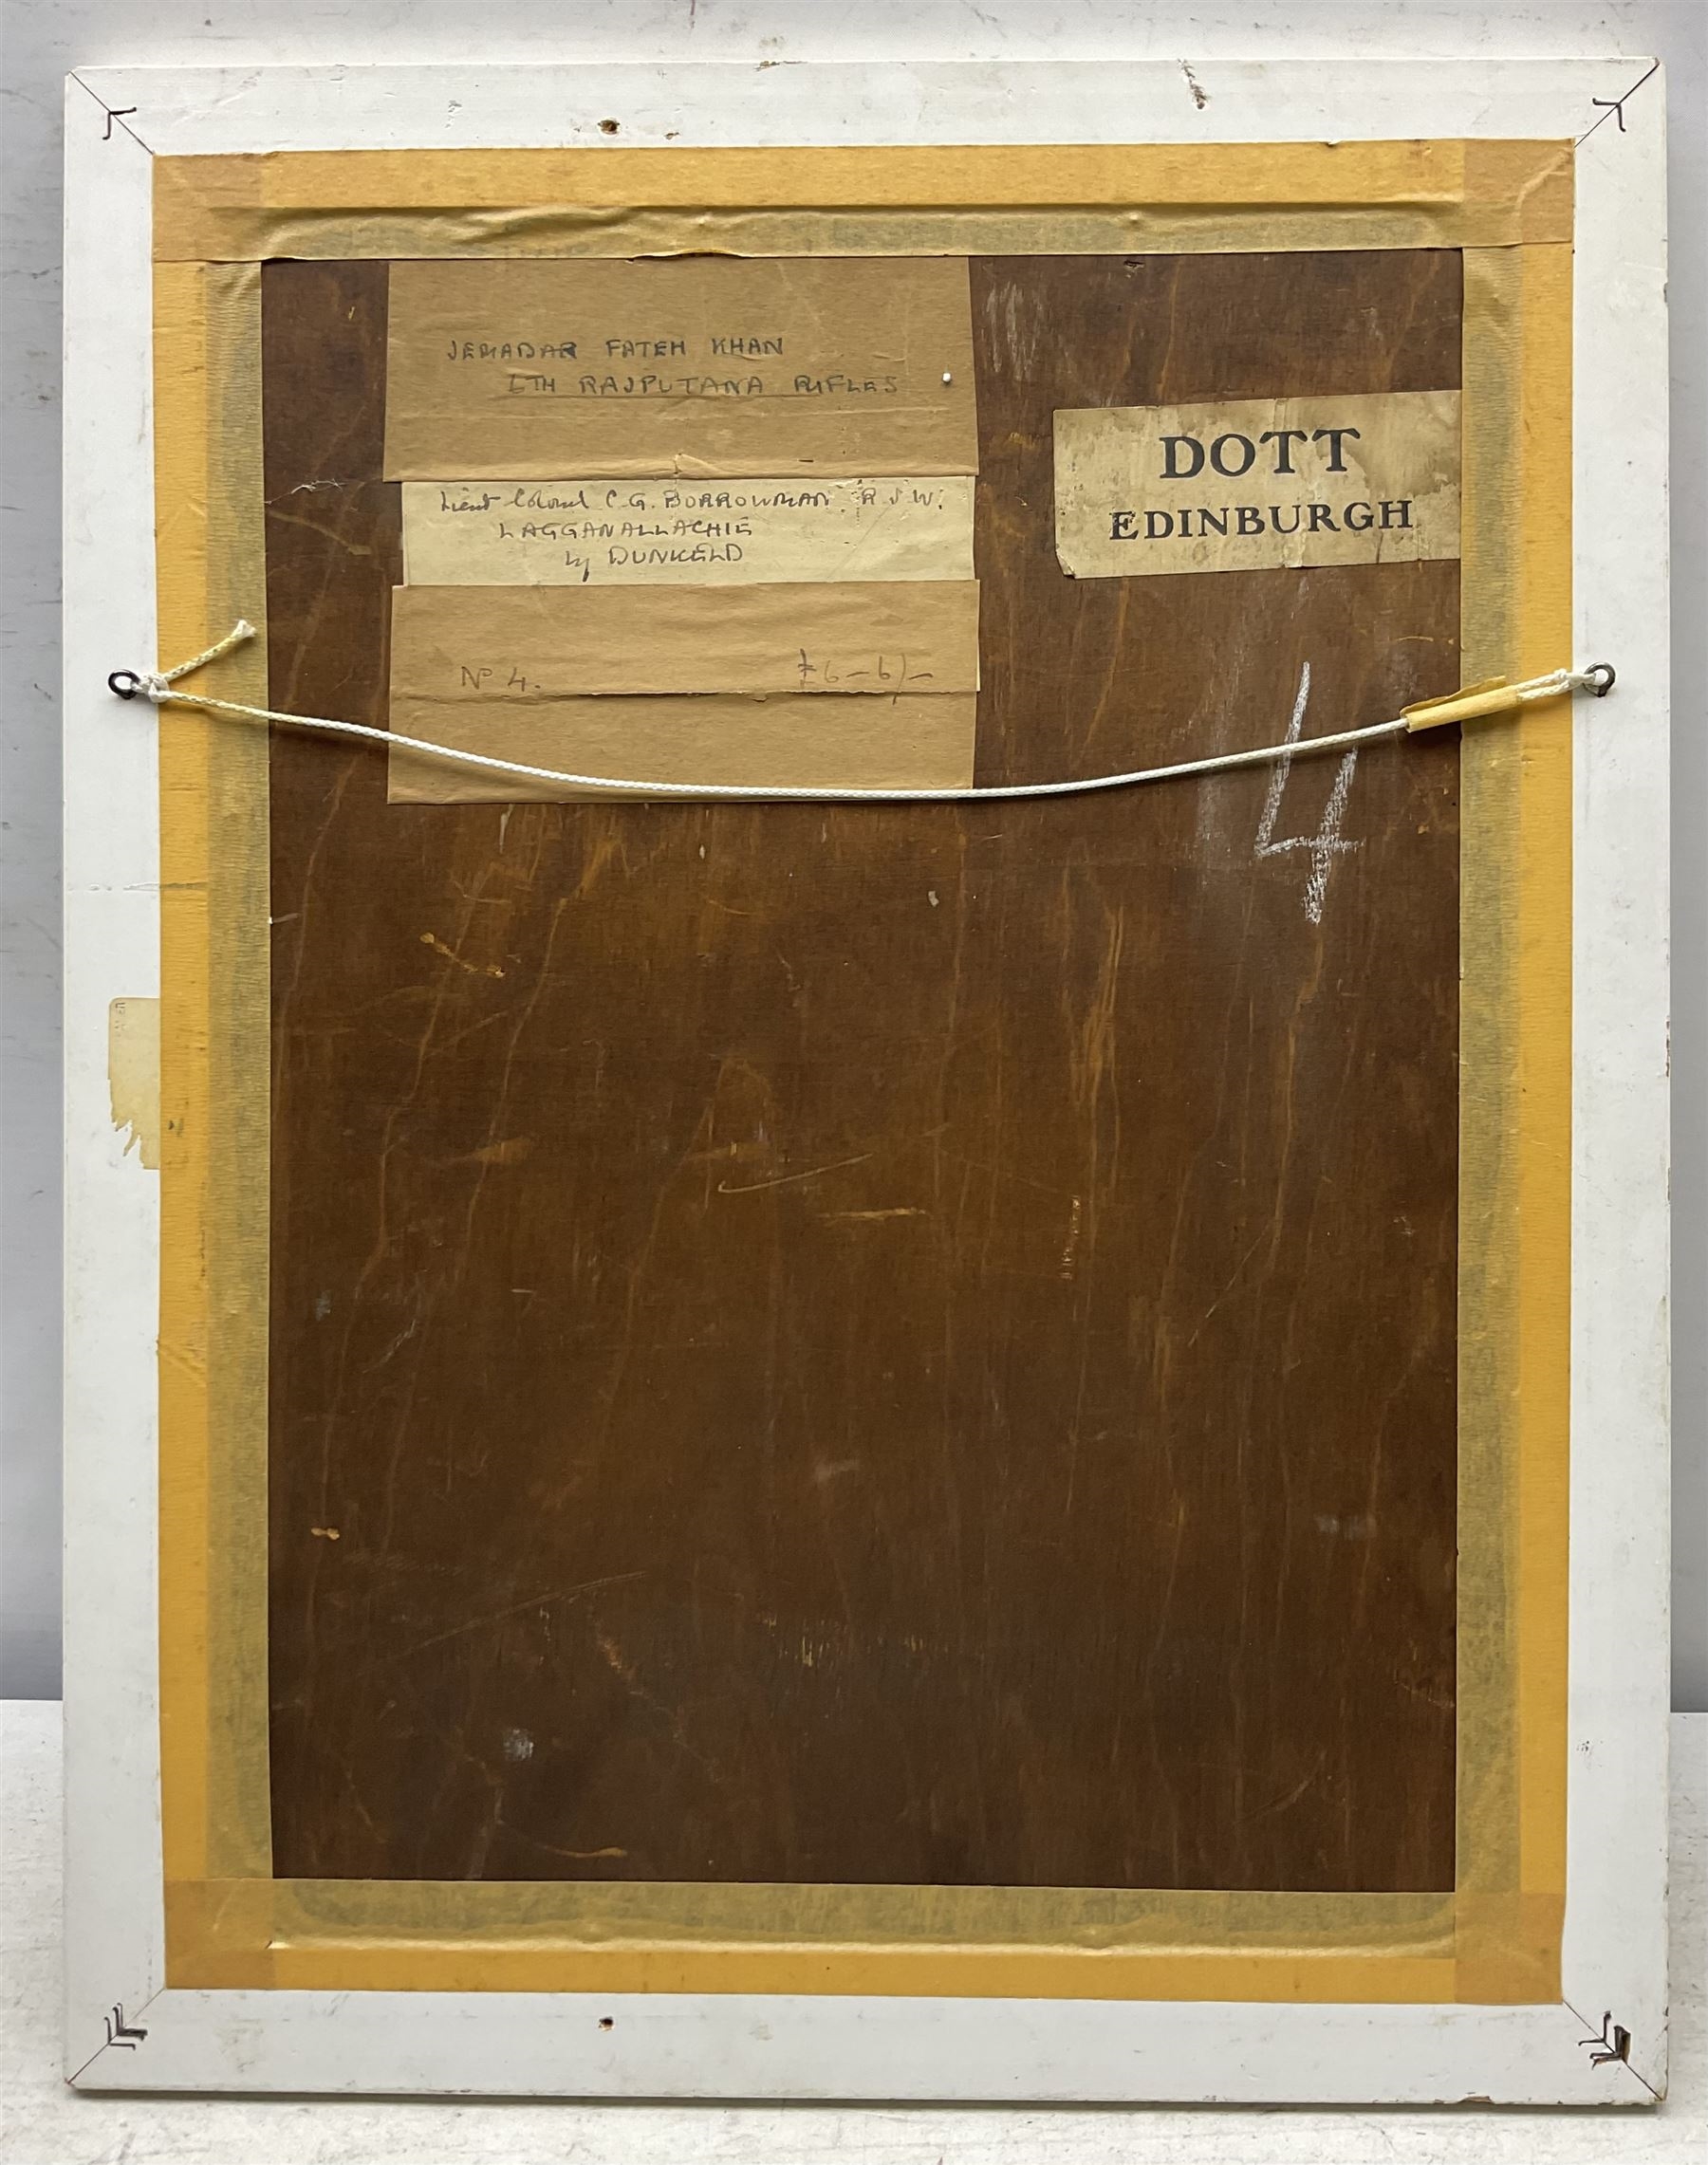 JEMADAR FATEH KHAN
6TH RAJPUTANA RIFLES
Lieut Colonel C.G. BORROWMAN. R.S.W.
LAGGANALLACHIE
by DUNKELD
Nº 4. £6-6/-
DOTT
EDINBURGH
4